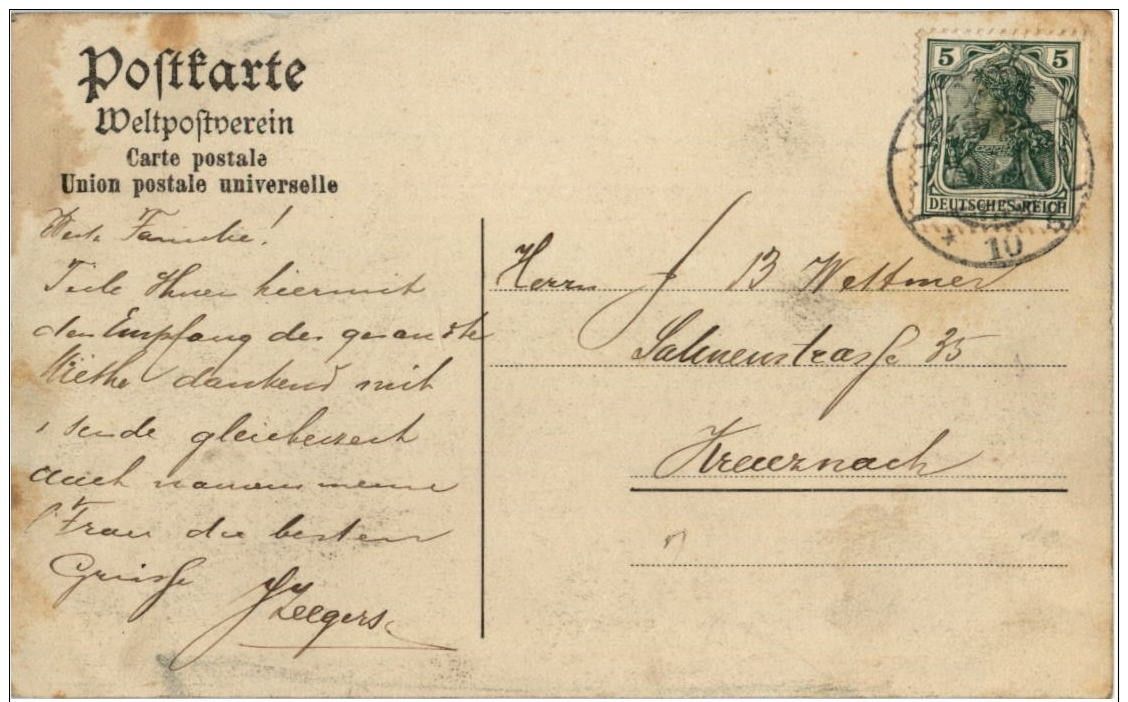 Postkarte
Weltpostverein
Carte postale
Union postale universelle
5 5
DEUTSCHES REICH
10
Werte Familie!
Teile Ihnen hiermit
den Empfang der gesandte
Miethe dankend mit
sende gleichzeit
auch namens meine
Frau die besten
Grüsse
JZeegers
Herrn J B Wettmer
Salinenstrasse 35
Kreuznach